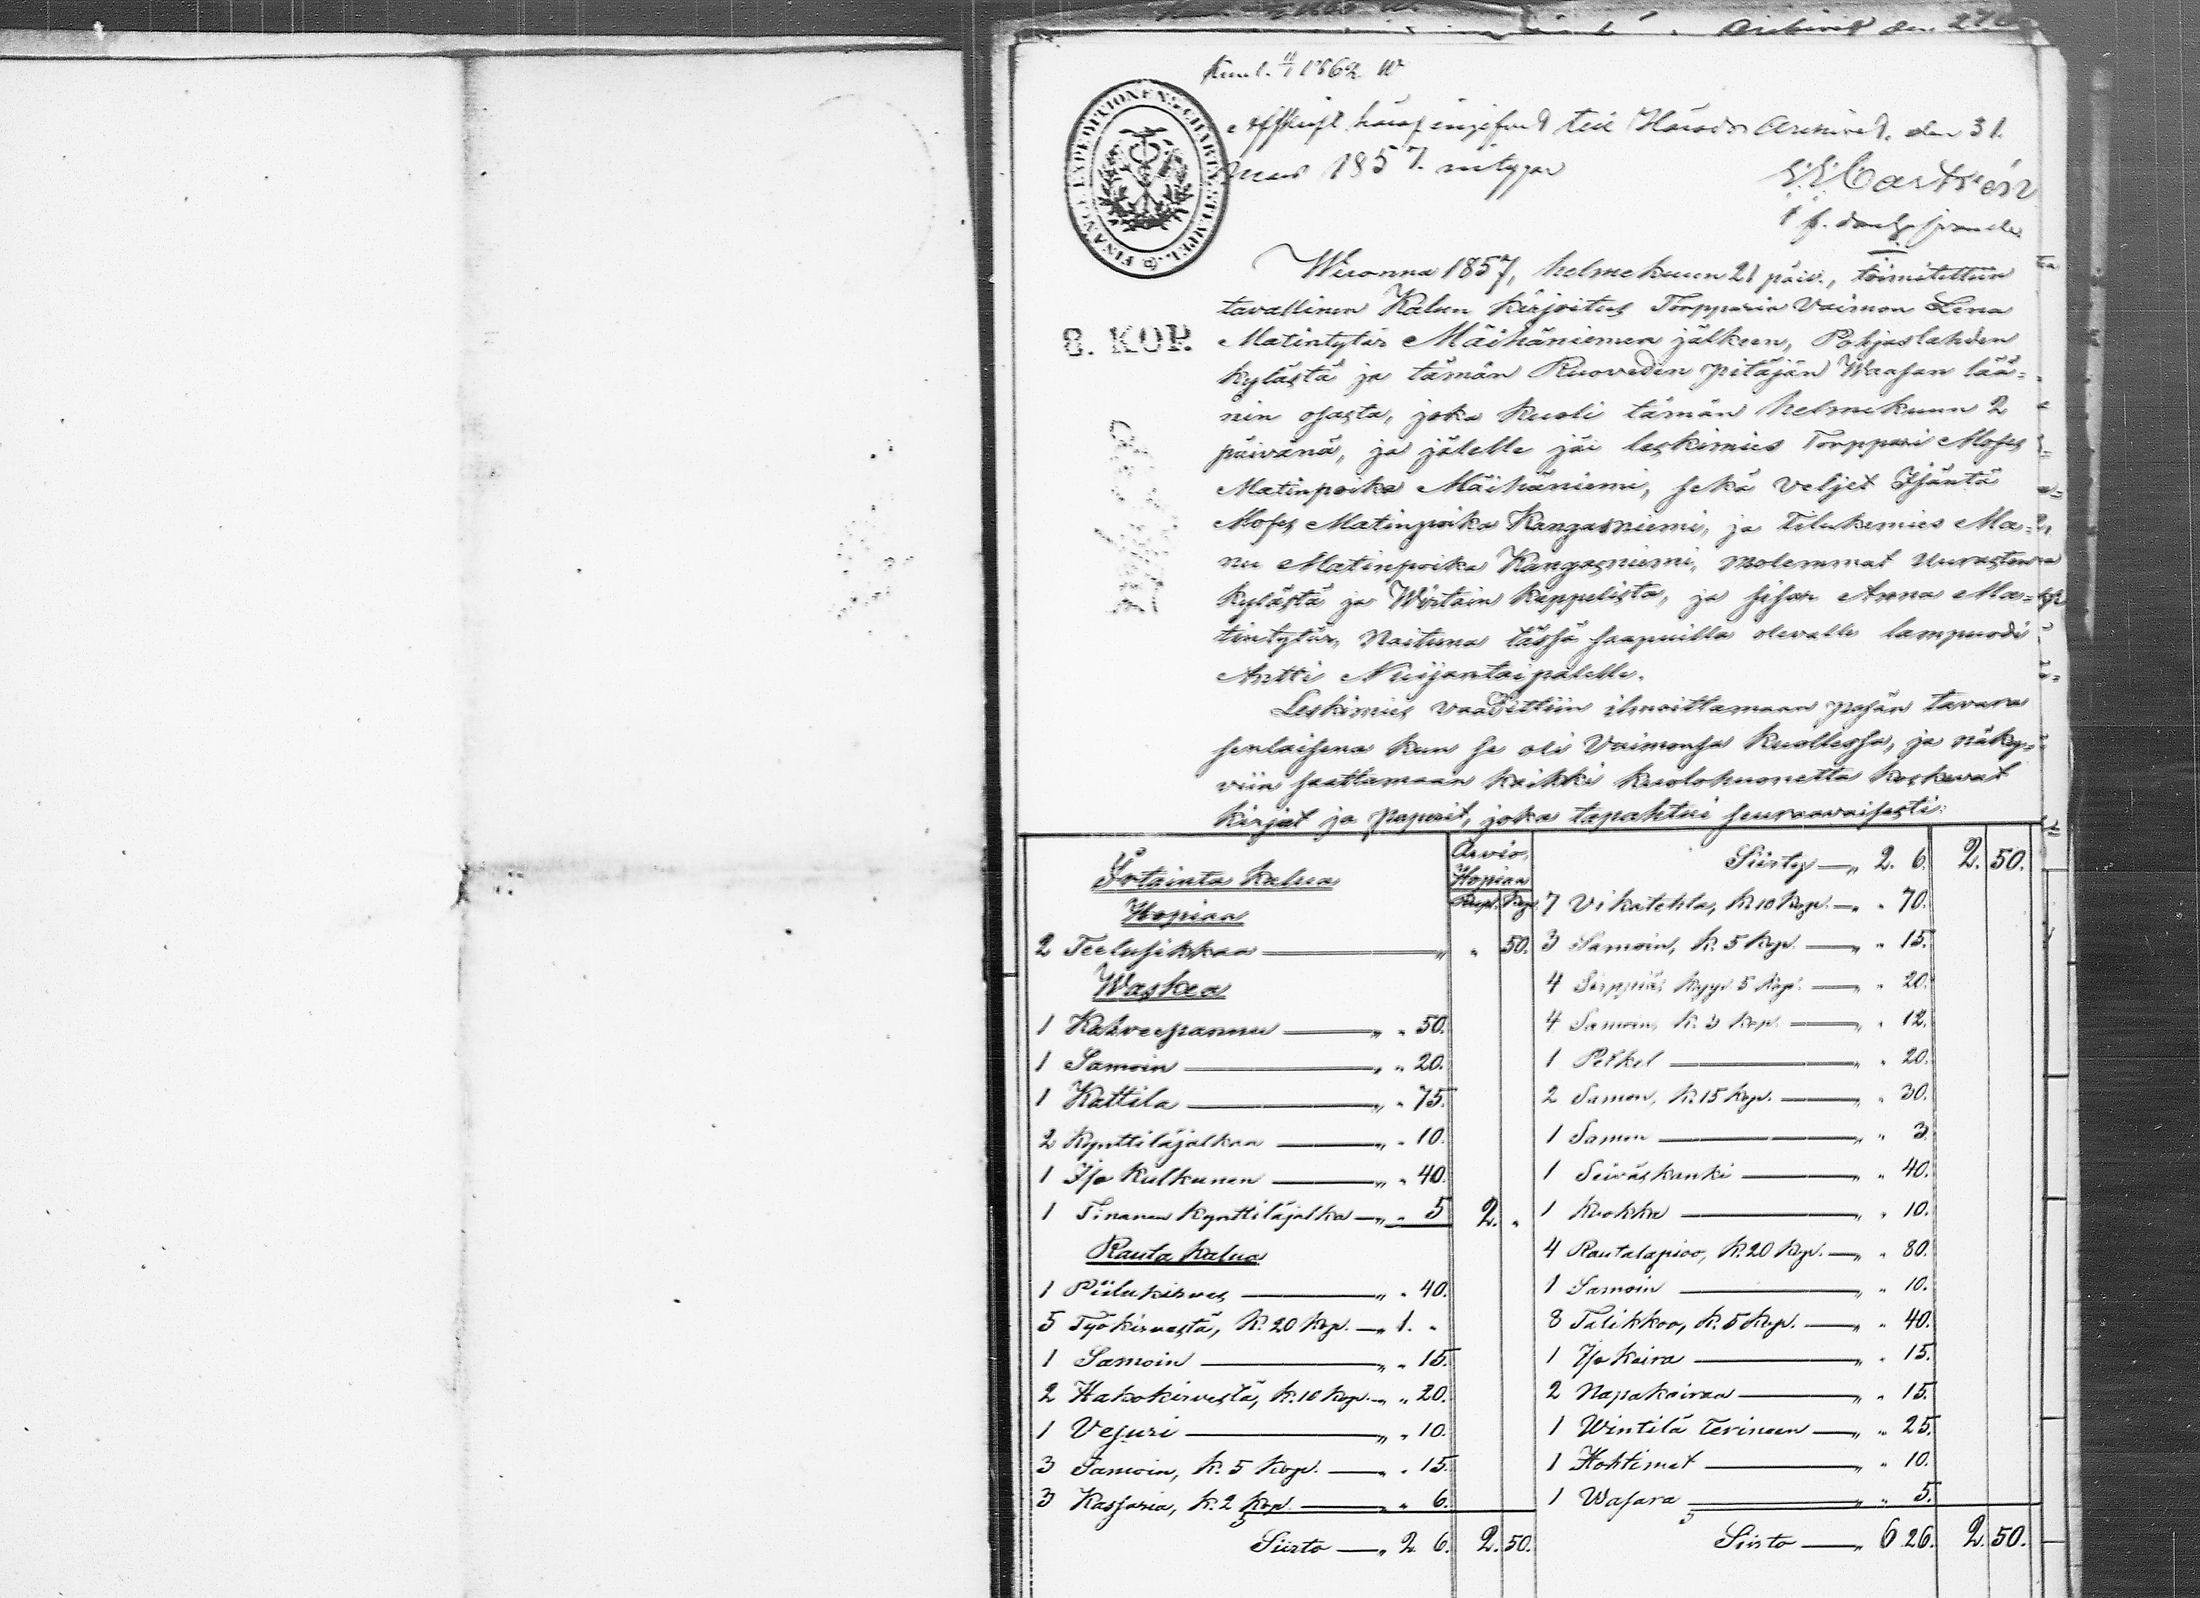 1862 W
till Härads Archivet, den 31.
Mars 1857. intygar
Castrén
FINANCE EXPEDITIONENS CHARTÆ STEMPEL
8. KOP.
Wuonna 1857, helmekuun 21 päiv., töimitettiin
tavallinen Kalun kirjoitus Torpparin Vaimon Lena
Matintytär Mäihäniemen jälkeen, Pohjaslahden
kylästä ja tämän Ruoveden pitäjän Waasan lää=
nin osasta, joka kuoli tämän helmekuun 2
päivänä, ja jälelle jäi leskimies Torppari Moses
Matinpoika Mäihäniemi, sekä veljet Isäntä
Moses Matinpoika Kangasniemi, ja tilukemies Ma=
nu Matinpoika Kangasniemi, molemmat
kylästä ja Wirtain kappelista, ja sisar Anna Ma=
tintytär, Naituna tässä saapuilla olevalle lampuodi
Antti Nuijantaipalelle.
Leskimies vaadittiin ilmoittamaan pesän tavara
senlaisena kun se oli Vaimonsa kuollessa, ja näky=
viin saattamaan kaikki kuolohuonetta koskevat
kirjat ja paperit, joka tapahtui seuraavaisesti:
Irtainta kalua
Arvio.
Hopiaa
Rupl. Kop.
Hopiaa
2 Teelusikkaa — " " 50.
Waskea
1 Kahveepannu — " " 50.
1 Samoin — " " 20.
1 Kattila — " " 75.
2 Kynttiläjalkaa — " " 10.
1 Iso Kulkunen — " " 40.
1 Tinanen Kynttiläjalka — " " 5 2. "
Rauta kalua
1 Piilukirves — " " 40.
5 Työkirvestä, k. 20 kop. — " 1. "
1 Samoin — " " 15.
2 Hakokirvestä, k. 10 kop. — " " 20.
1 Vesuri — " " 10.
3 Samoin, k. 5 kop. — " " 15.
3 Kassaria, k. 2 kop. — " " 6.
Siirto — " 2. 6. 2. 50.
Siirto — " 2. 6. 2. 50.
7 Vikatehta, k. 10 kop. — " " 70.
3 Samoin, k. 5 kop. — " " 15.
4 Sirppiä, 5 kop. — " " 20.
4 Samoin, k. 3 kop. — " " 12.
1 Petkel — " " 20.
2 Samon, k. 15 kop. — " " 30.
1 Samon — " " 3
1 Seiväskanki — " " 40.
1 Kuokka — " " 10.
4 Rautalapioo, k. 20 kop. — " " 80.
1 Samoin — " " 10.
8 Talikkoo, k. 5 kop. — " " 40.
1 Iso Kaira — " " 15.
2 Napakairaa — " " 15.
1 Wintilä terineen — " " 25
1 Hohtimet — " " 10.
1 Wasara — " " 5.
Siirto — " 6 26. 2. 50.